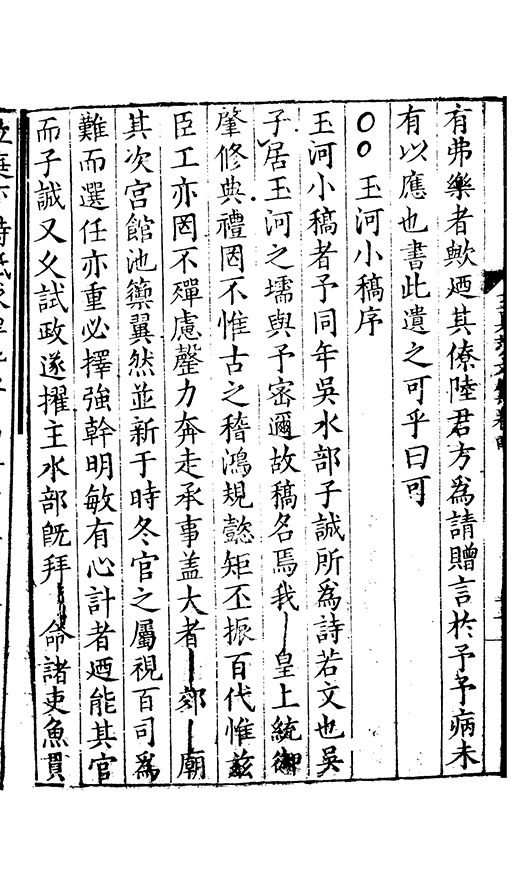 有弗樂者歟迺其僚陸君方爲請贈言於予予病未
有以應也書此遺之可乎曰可
○○玉河小稿序
玉河小稿者予同年吳水部子誠所爲詩若文也吳
子居玉河之壖與予密邇故稿名焉我皇上統御
肇修典禮罔不惟古之稽鴻規懿矩丕振百代惟茲
臣工亦罔不殫慮罄力奔走承事盖大者郊廟
其次宮館池籞翼然並新于時冬官之屬視百司爲
難而選任亦重必擇強幹明敏有心計者迺能其官
而子誠又乆試政遂擢主水部旣拜命諸吏魚貫